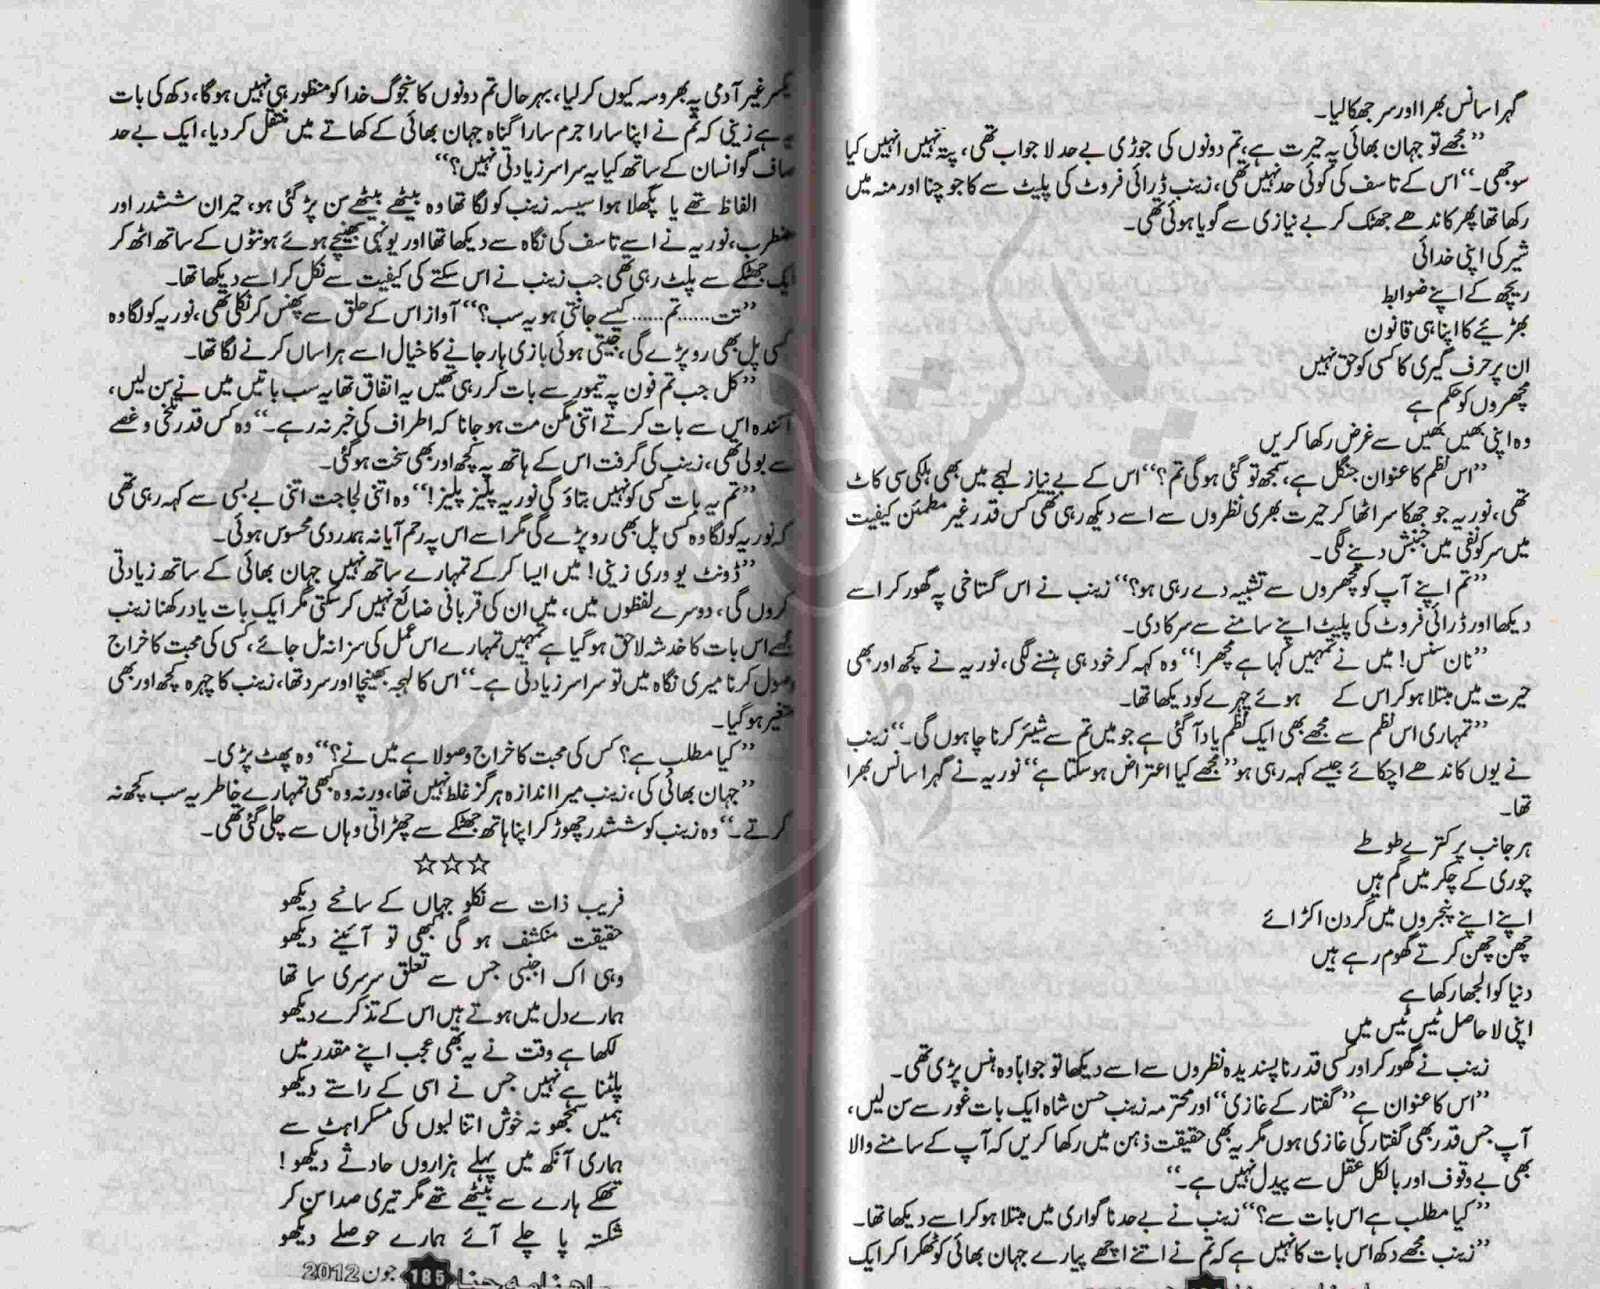 گہرا سانس بھرا اور سر جھکا لیا۔
”مجھے تو جہان بھائی پہ حیرت ہے، تم دونوں کی جوڑی بے حد لاجواب تھی، پتہ نہیں انہیں کیا
سوجھی۔“ اس کے تاسف کی کوئی حد نہیں تھی، زینب ڈرائی فروٹ کی پلیٹ سے کاجو چنا اور منہ میں
رکھا تھا پھر کاندھے جھٹک کر بے نیازی سے گویا ہوئی تھی۔
شیر کی اپنی خدائی
ریچھ کے اپنے ضوابط
بھڑیئے کا اپنا ہی قانون
ان پر حرف گیری کا کسی کو حق نہیں
مچھروں کو حکم ہے
وہ اپنی بھیں بھیں سے غرض رکھا کریں
”اس نظم کا عنوان جنگل ہے، سمجھ تو گئی ہوگی تم؟“ اس کے بے نیاز لہجے میں بھی ہلکی سی کاٹ
تھی، نوریہ جو جھکا سر اٹھا کر حیرت بھری نظروں سے اسے دیکھ رہی تھی کس قدر غیر مطمئن کیفیت
میں سر کو نفی میں جنبش دینے لگی۔
”تم اپنے آپ کو مچھروں سے تشبیہ دے رہی ہو؟“ زینب نے اس گستاخی پہ گھور کر اسے
دیکھا اور ڈرائی فروٹ کی پلیٹ اپنے سامنے سے سرکا دی۔
”نان سنس! میں نے تمہیں کہا ہے مچھر!“ وہ کہہ کر خود ہی ہننے لگی، نوریہ نے کچھ اور بھی
حیرت میں مبتلا ہو کر اس کے ہوئے چہرے کو دیکھا تھا۔
”تمہاری اس نظم سے مجھے بھی ایک نظم یاد آ گئی ہے جو میں تم سے شیئر کرنا چاہوں گی۔“ زینب
نے یوں کاندھے اچکائے جیسے کہہ رہی ہو ”مجھے کیا اعتراض ہو سکتا ہے“ نوریہ نے گہرا سانس بھرا
تھا۔
ہر جانب پر کترے طوطے
چوری کے چکر میں گم ہیں
اپنے اپنے پنجروں میں گردن اکڑائے
چھن چھن کرتے گھوم رہے ہیں
دنیا کو الجھا رکھا ہے
اپنی لاحاصل ٹیں ٹیں میں
زینب نے گھور کر اور کسی قدر ناپسندیدہ نظروں سے اسے دیکھا تو جواباً وہ ہنس پڑی تھی۔
”اس کا عنوان ہے ”گفتار کے غازی“ اور محترمہ زینب حسن شاہ ایک بات غور سے سن لیں،
آپ جس قدر بھی گفتار کی غازی ہوں مگر یہ بھی حقیقت ذہن میں رکھا کریں کہ آپ کے سامنے والا
بھی بے وقوف اور بالکل عقل سے پیدل نہیں ہے۔“
”کیا مطلب ہے اس بات سے؟“ زینب نے بے حد ناگواری میں مبتلا ہو کر اسے دیکھا تھا۔
”زینب مجھے دکھ اس بات کا نہیں ہے کہ تم نے اتنے اچھے پیارے جہان بھائی کو ٹھکرا کر ایک
یکسر غیر آدمی پہ بھروسہ کیوں کر لیا، بہرحال تم دونوں کا سنجوگ خدا کو منظور ہی نہیں ہوگا، دکھ کی بات
یہ ہے زینی کہ تم نے اپنا سارا جرم سارا گناہ جہان بھائی کے کھاتے میں منتقل کر دیا، ایک بے حد
صاف گو انسان کے ساتھ کیا یہ سراسر زیادتی نہیں؟“
الفاظ تھے یا پگھلا ہوا سیسہ زینب کو لگا تھا وہ بیٹھے بیٹھے سن پڑ گئی ہو، حیران ششدر اور
مضطرب، نوریہ نے اسے تاسف کی نگاہ سے دیکھا تھا اور یونہی بھینچے ہوئے ہونٹوں کے ساتھ اٹھ کر
ایک جھٹکے سے پلٹ رہی تھی جب زینب نے اس سکتے کی کیفیت سے نکل کر اسے دیکھا تھا۔
”تت ...... تم ...... کیسے جانتی ہو یہ سب؟“ آواز اس کے حلق سے پھنس کر نکلی تھی، نوریہ کو لگا وہ
کسی پل بھی رو پڑے گی، جیتی ہوئی بازی ہار جانے کا خیال اسے ہراساں کرنے لگا تھا۔
”کل جب تم فون پہ تیمور سے بات کر رہی تھیں یہ اتفاق تھا یہ سب باتیں میں نے سن لیں،
آئندہ اس سے بات کرتے اتنی مگن مت ہو جانا کہ اطراف کی خبر نہ رہے۔“ وہ کس قدر تلخی و غصے
سے بولی تھی، زینب کی گرفت اس کے ہاتھ پہ کچھ اور بھی سخت ہو گئی۔
”تم یہ بات کسی کو نہیں بتاؤ گی نوریہ پلیز پلیز!“ وہ اتنی لجاجت اتنی بے بسی سے کہہ رہی تھی
کہ نوریہ کو لگا وہ کسی پل بھی رو پڑے گی مگر اسے اس پہ رحم آیا نہ ہمدردی محسوس ہوئی۔
”ڈونٹ یو وری زینی! میں ایسا کر کے تمہارے ساتھ نہیں جہان بھائی کے ساتھ زیادتی
کروں گی، دوسرے لفظوں میں، میں ان کی قربانی ضائع نہیں کر سکتی مگر ایک بات یاد رکھنا زینب
مجھے اس بات کا خدشہ لاحق ہو گیا ہے تمہیں تمہارے اس عمل کی سزا نہ مل جائے، کسی کی محبت کا خراج
وصول کرنا میری نگاہ میں تو سراسر زیادتی ہے۔“ اس کا لہجہ بھینچا اور سرد تھا، زینب کا چہرہ کچھ اور بھی
متغیر ہو گیا۔
”کیا مطلب ہے؟ کس کی محبت کا خراج وصولا ہے میں نے؟“ وہ پھٹ پڑی۔
”جہان بھائی کی، زینب میرا اندازہ ہرگز غلط نہیں تھا، ورنہ وہ کبھی تمہارے خاطر یہ سب کچھ نہ
کرتے۔“ وہ زینب کو ششدر چھوڑ کر اپنا ہاتھ جھٹکے سے چھڑاتی وہاں سے چلی گئی تھی۔
☆☆☆
فریب ذات سے نکلو جہاں کے سانحے دیکھو
حقیقت منکشف ہو گی کبھی تو آئینے دیکھو
وہی اک اجنبی جس سے تعلق سرسری سا تھا
ہمارے دل میں ہوتے ہیں اس کے تذکرے دیکھو
لکھا ہے وقت نے یہ بھی عجب اپنے مقدر میں
پلٹنا ہے نہیں جس نے اسی کے راستے دیکھو
ہمیں سمجھو نہ خوش اتنا لبوں کی مسکراہٹ سے
ہماری آنکھ میں پہلے ہزاروں حادثے دیکھو!
تھکے ہارے سے بیٹھے تھے مگر تیری صدا سن کر
شکستہ پا چلے آئے ہمارے حوصلے دیکھو
ماہنامہ حنا 185 جون 2012